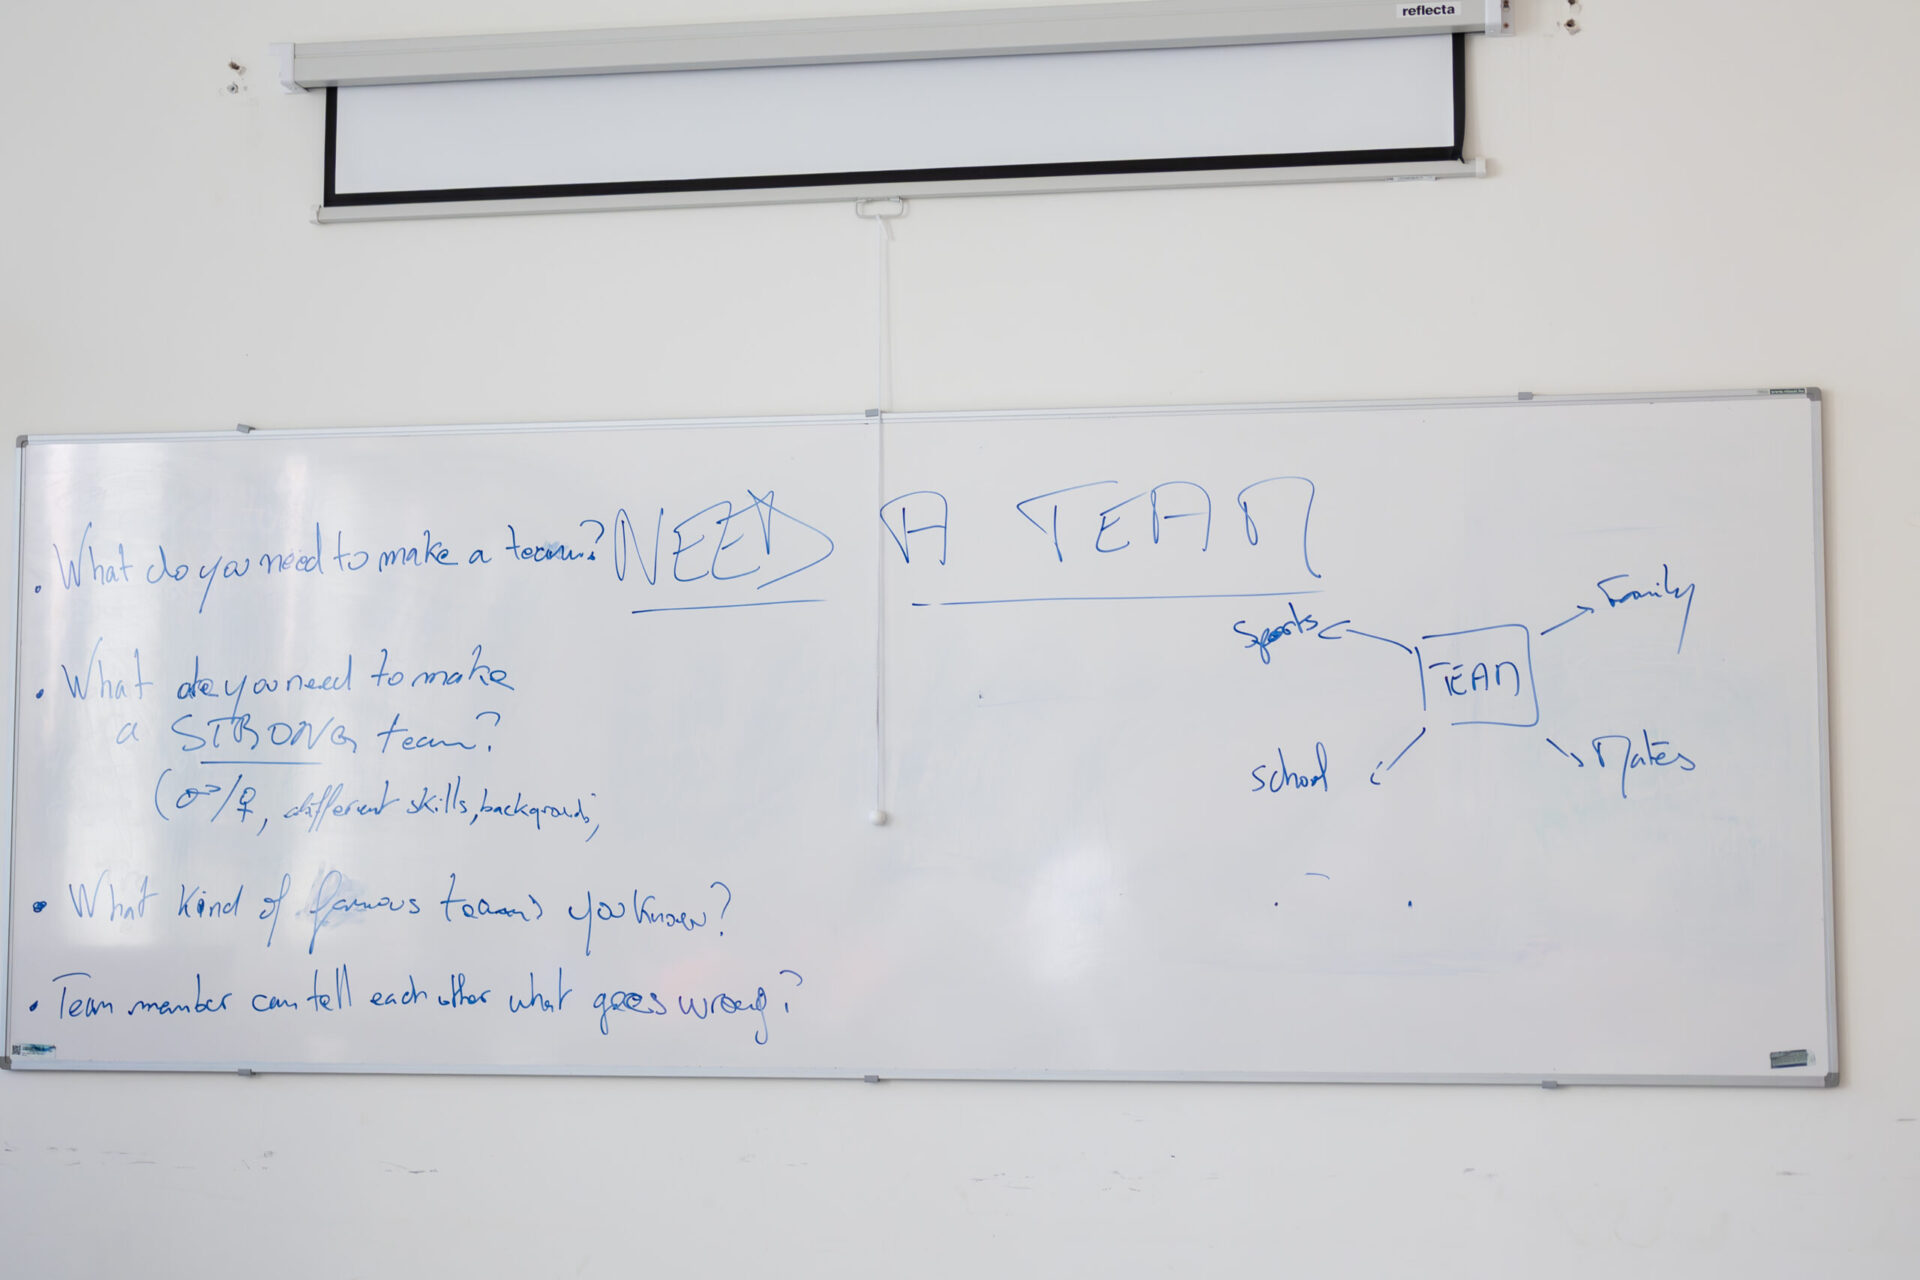 reflecta
NEED A TEAM
• What do you need to make a team?
• What do you need to make
a STRONG team?
(♂/♀, different skills, backgrounds,
• What kind of famous teams you know?
• Team member can tell each other what goes wrong?
TEAM
Sports
Family
School
Mates